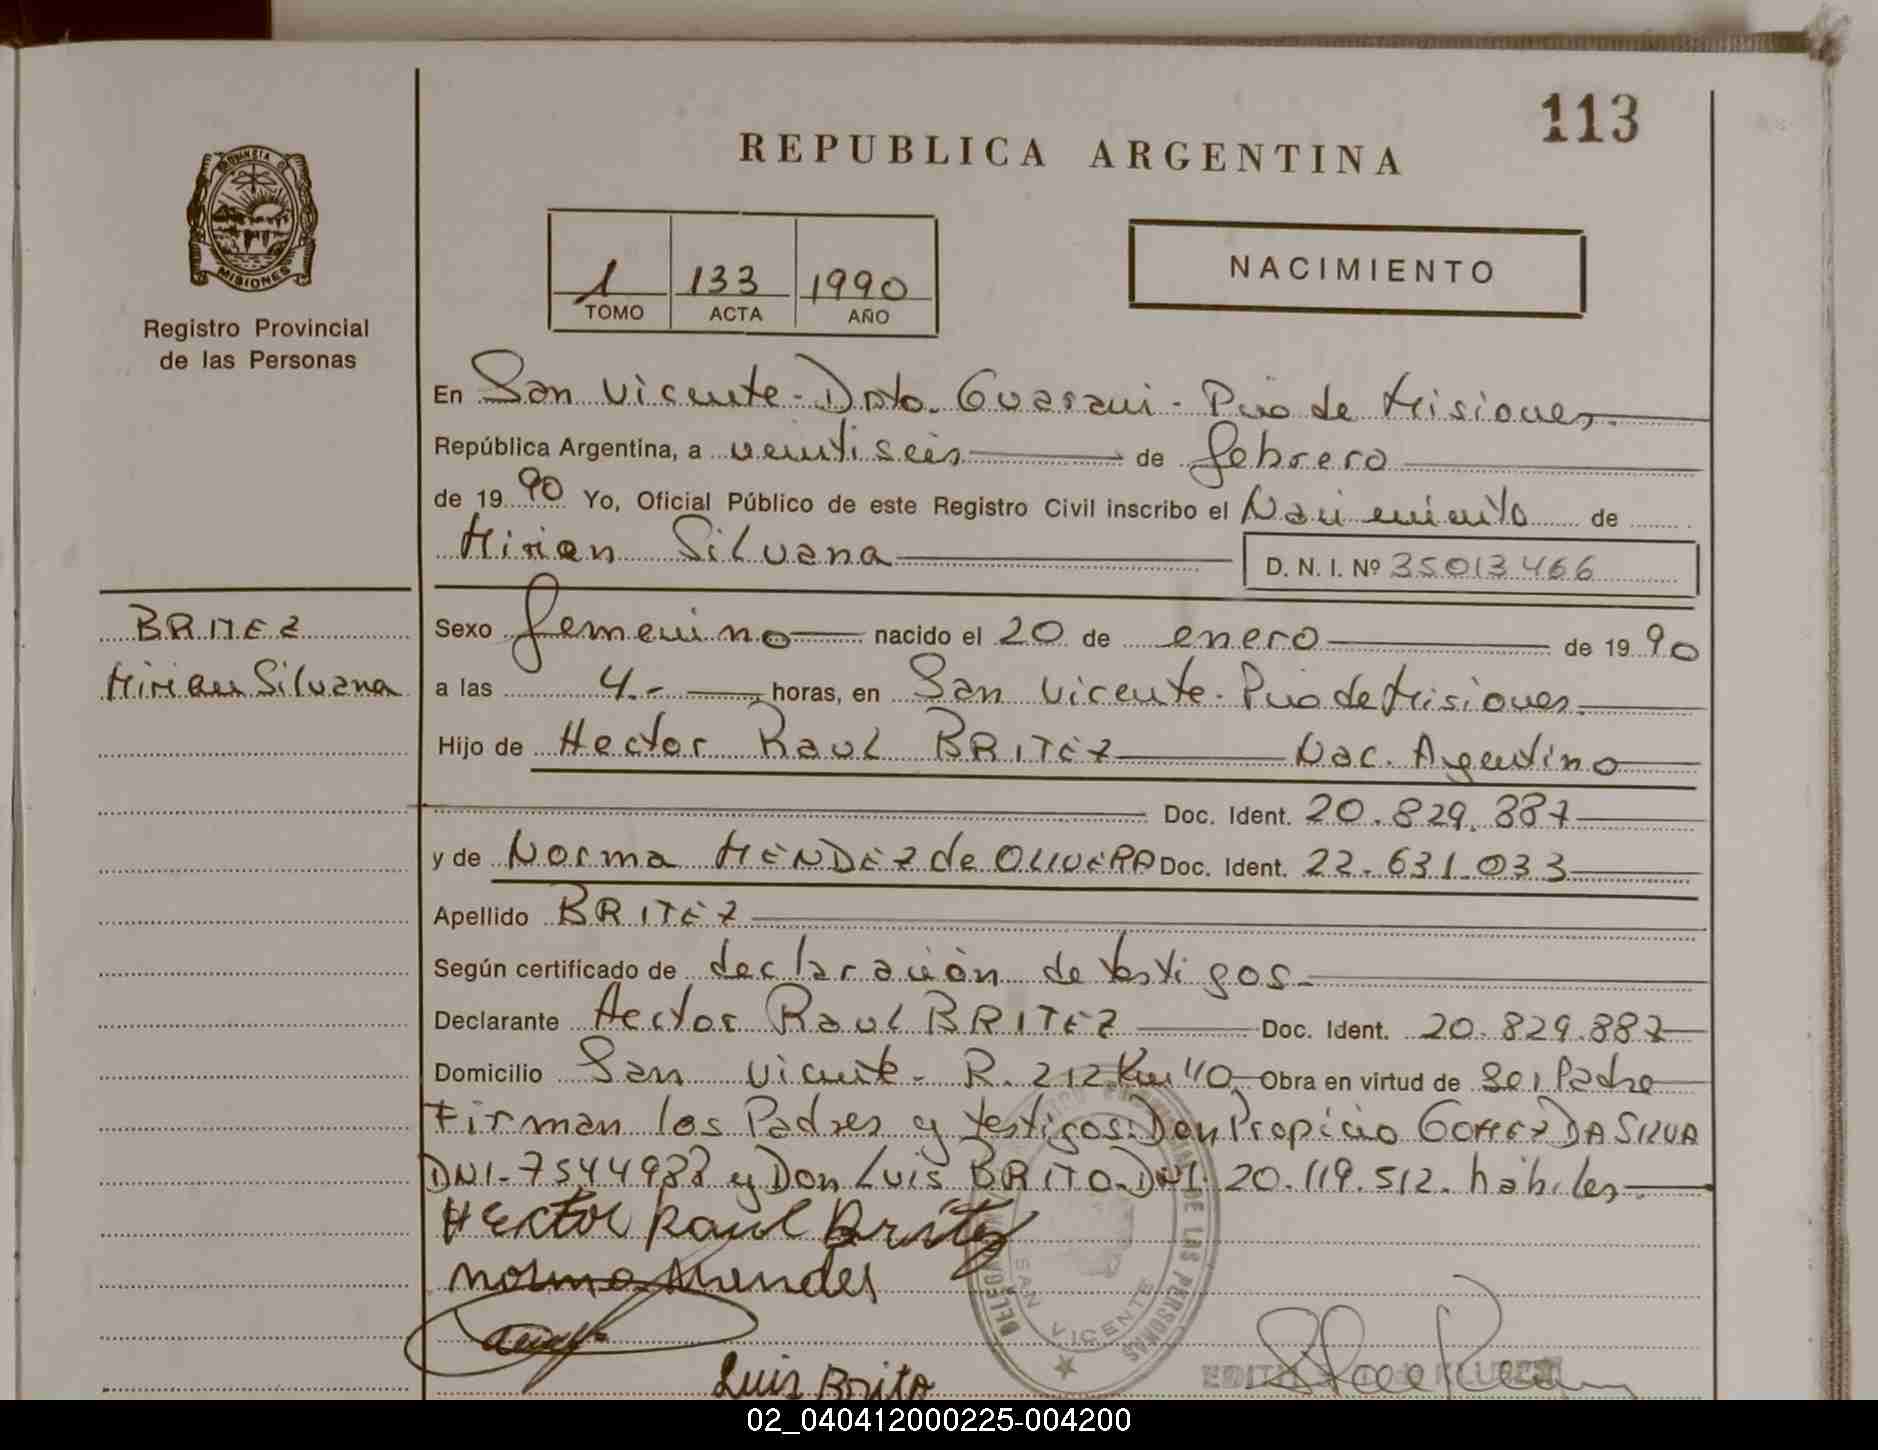 113
REPUBLICA ARGENTINA
PROVINCIA DE
MISIONES
Registro Provincial
de las Personas
1 133 1990
TOMO ACTA AÑO
NACIMIENTO
En San Vicente - Dpto. Guarani - Pcia de Misiones.
República Argentina, a veintiseis de febrero
de 1990 Yo, Oficial Público de este Registro Civil inscribo el Nacimiento de
Mirian Silvana
D. N. I. Nº 35013466
BRITEZ
Mirian Silvana
Sexo femenino nacido el 20 de enero de 1990
a las 4.- horas, en San Vicente - Pcia de Misiones.
Hijo de Hector Raul BRITEZ Nac. Argentino
Doc. Ident. 20.829.887
y de Norma MENDEZ de OLIVERA Doc. Ident. 22.631.033
Apellido BRITEZ
Según certificado de declaración de testigos.
Declarante Hector Raul BRITEZ Doc. Ident. 20.829.887
Domicilio San Vicente - R. 212 Km 40 Obra en virtud de ser Padre
Firman los Padres y testigos: Don Propicio GOMEZ DA SILVA
DNI- 7544988 y Don Luis BRITO - DNI 20.119.512. hábiles.
Hector Raul Britez
Norma Mendes
Luis Brito
DE LAS PERSONAS
SAN VICENTE
EDITH
02_040412000225-004200